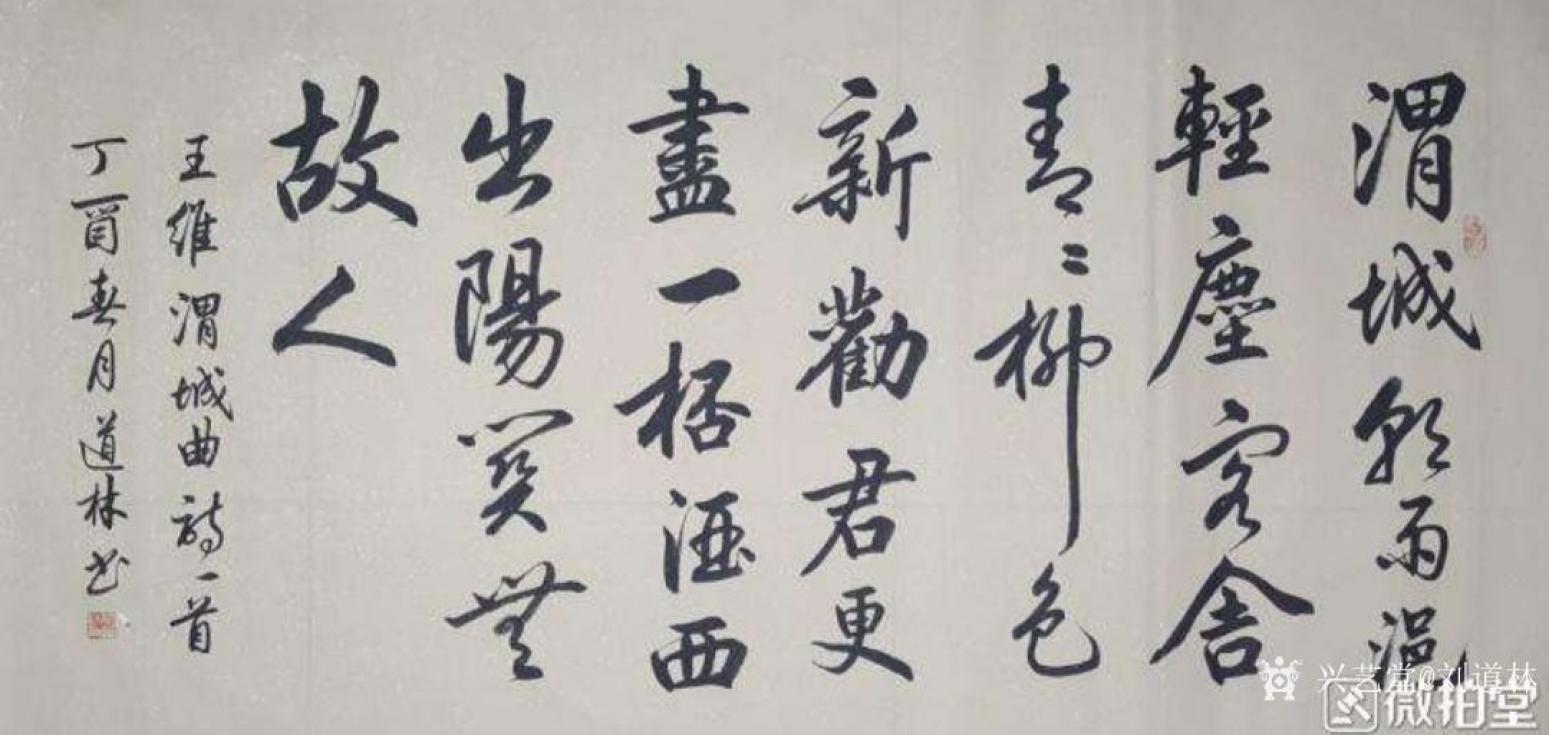 渭城朝雨浥
輕塵客舍
青〻柳色
新勸君更
盡一杯酒西
出陽關無
故人
王維渭城曲詩一首
丁酉春月道林书
兴艺堂@刘道林
微拍堂